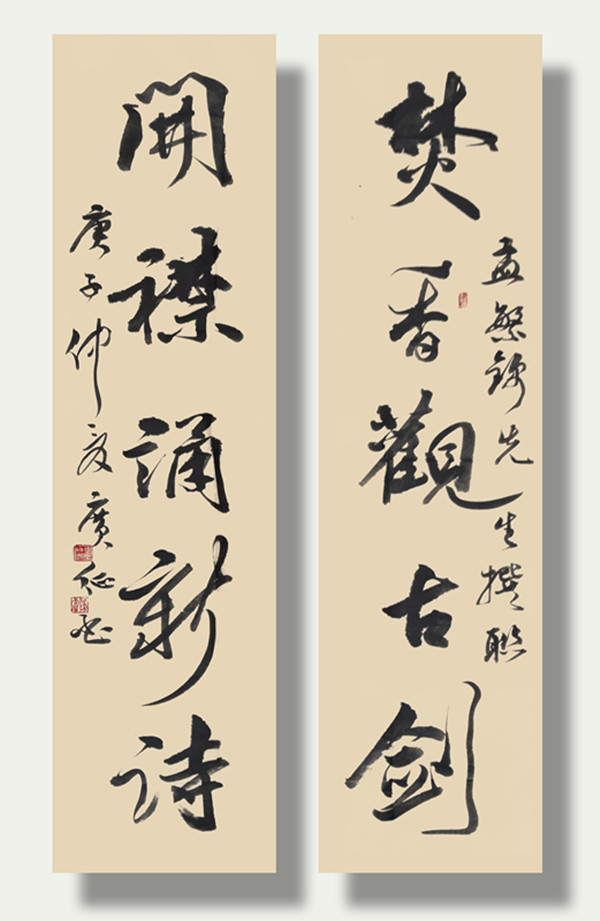 孟繁錦先生撰聯
焚香觀古劍
開襟誦新詩
庚子仲夏廣征書